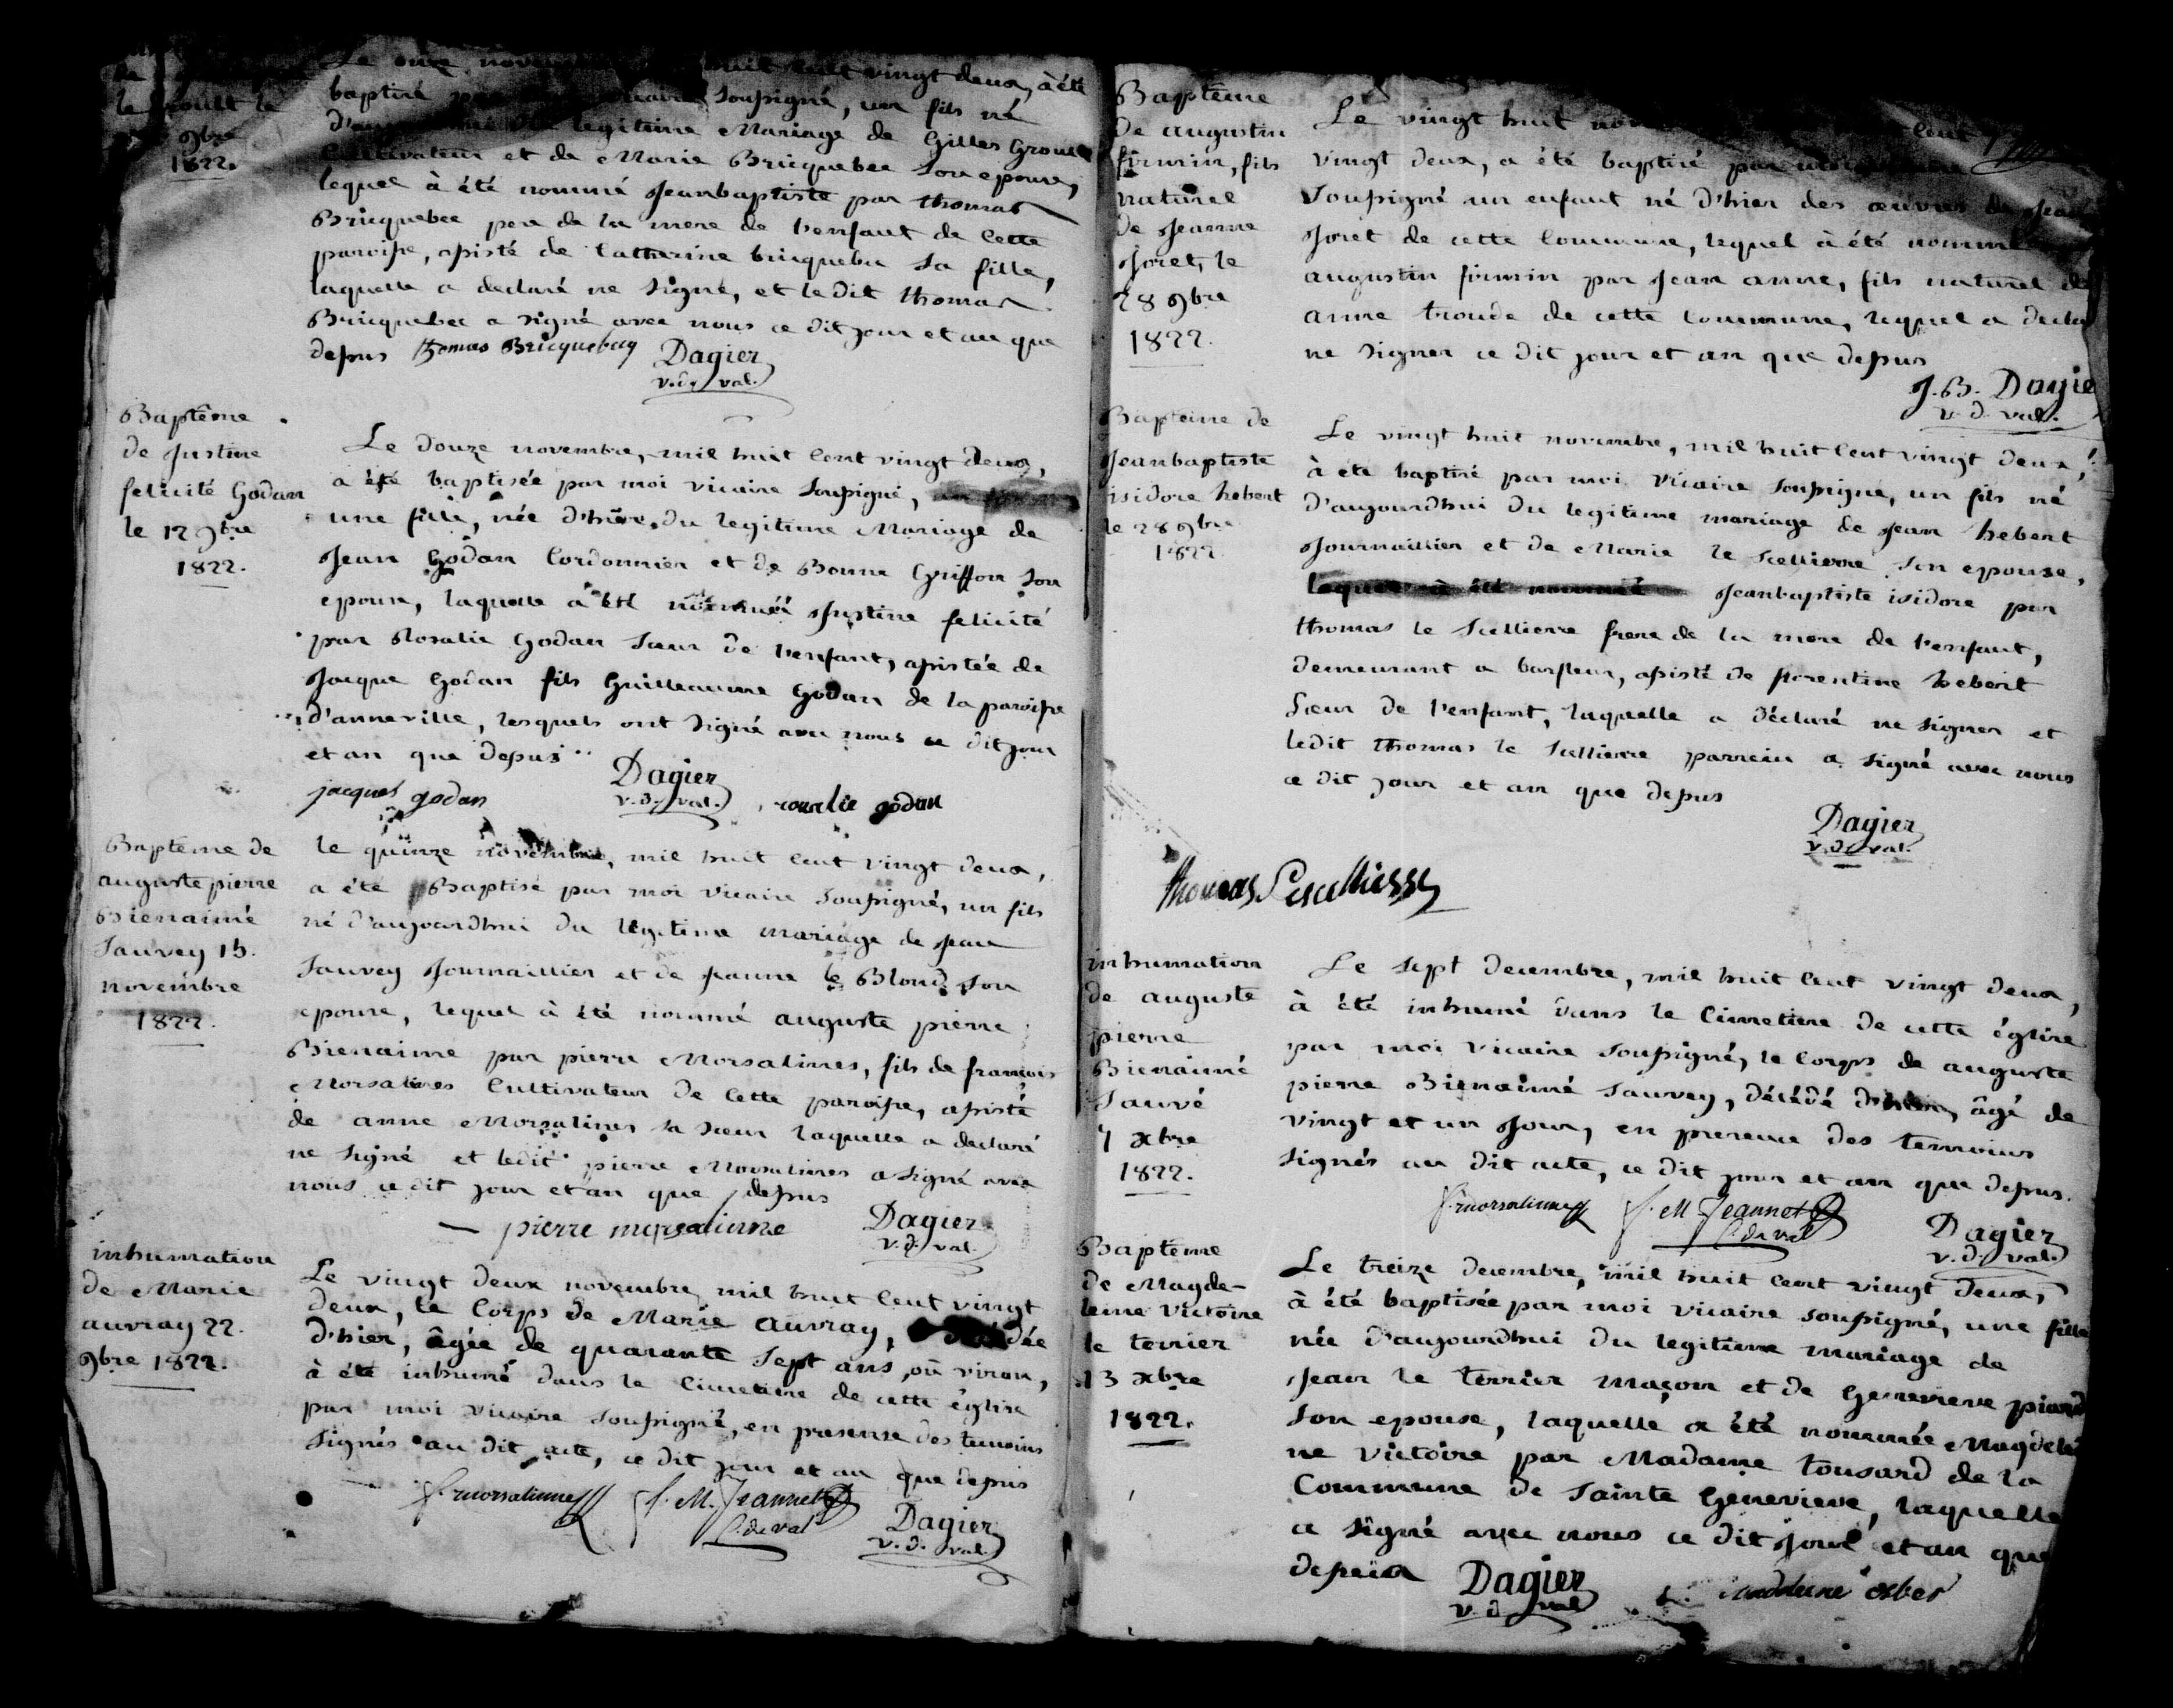 le groult le
9bre
1822.
Le onze huit cent vingt deux, à été
baptisé soussigné, un fils né
legitime Mariage de Gilles Groult
Cultivateur et de Marie Bricquebec son epouse,
lequel à été nommé Jeanbaptiste par thomas
Bricquebec pere de la mere de l'enfant de cette
paroisse, assisté de Catherine bricquebec sa fille,
laquelle a declaré ne signé, et le dit thomas
Bricquebec a signé avec nous ce dit jour et an que
dessus thomas Bricquebecq Dagier
v. d. val.
Baptême
de Justine
felicité Godan
le 12 9bre
1822.
Le douze novembre, mil huit Cent vingt deux,
a été baptisée par moi vicaire soussigné,
une fille, née d'hier, du legitime Mariage de
Jean Godan Cordonnier et de Bonne Griffon son
epouse, laquelle a été nommée Justine felicité
par Rosalie Godan sœur de l'enfant, assistée de
Jacque Godan fils Guilleaume Godan de la paroisse
d'anneville, lesquels ont signé avec nous ce dit jour
et an que dessus
jacques godan Dagier rosalie godan
v. d. val.
Baptême de
auguste pierre
Bienaimé
Sauvey 15.
novembre
1822.
le quinze novembre, mil huit Cent vingt deux,
a été Baptisé par moi vicaire soussigné, un fils
né d'aujourdhui du legitime mariage de Jean
Sauvey Journaillier et de Jeanne le Blond son
epouse, lequel à été nommé auguste pierre
Bienaimé par pierre Morsalines, fils de francois
Morsalines Cultivateur de Cette paroisse, assisté
de anne Morsalines sa sœur laquelle a declaré
ne signé et ledit pierre Morsalines a signé avec
nous ce dit jour et an que dessus
pierre morsalinne Dagier
v. d. val.
inhumation
de Marie
auvray 22.
9bre 1822.
Le vingt deux novembre, mil huit Cent vingt
deux, le Corps de Marie auvray, décédée
d'hier, âgée de quarante sept ans, où viron,
à été inhumé dans le Cimetiere de cette église
par moi vicaire soussigné, en presense des temoins
signés au dit acte, ce dit jour et an que dessus
f. morsalinnes f. M. Jeannet
C. de val Dagier
v. d. val.
Baptême
de augustin
firmin, fils
naturel
de Jeanne
Joret, le
28 9bre
1822.
Le vingt huit
vingt deux, a été baptisé par moi
soussigné un enfant né d'hier des œuvres de
Joret de cette Commune, lequel à été nommé
augustin firmin par Jean anne, fils naturel de
anne troude de cette Commune, lequel a declaré
ne signer ce dit jour et an que dessus
J. B. Dagier
v. d. val.
Bapteme de
Jeanbaptiste
isidore hebert
le 28 9bre
1822
Le vingt huit novembre, mil huit Cent vingt deux,
à été baptisé par moi vicaire soussigné, un fils né
d'aujourdhui du legitime mariage de Jean hebert
Journaillier et de Marie le Scellierre son epouse,
lequel à été nommé Jeanbaptiste isidore par
thomas le Scellierre frere de la mere de l'enfant,
demeurant a barfleur, assisté de florentine hebert
sœur de l'enfant, laquelle a déclaré ne signer et
ledit thomas le Scellierre parrein a signé avec nous
ce dit jour et an que dessus
Dagier
v. d. val.
inhumation
de auguste
pierre
Bienaimé
Sauvé
7 xbre
1822.
Le sept decembre, mil huit Cent vingt deux,
à été inhumé dans le Cimetiere de cette église
par moi vicaire soussigné, le Corps de auguste
pierre Bienaimé Sauvey, décédé d'hier, âgé de
vingt et un Jour, en presence des temoins
signés au dit acte, ce dit jour et an que dessus.
f. morsalinnes f. M. Jeannet
C. de val Dagier
v. d. val.
Bapteme
de Magde-
leine victoire
le terrier
13 xbre
1822.
Le treize decembre, mil huit cent vingt deux,
à été baptisée par moi vicaire soussigné, une fille
née d'aujourdhui du legitime mariage de
Jean le terrier maçon et de Genevieve
son epouse, laquelle a été nommée Magdelei
ne victoire par Madame tousard de la
Commune de Sainte Genevieve, laquelle
a signé avec nous ce dit jour et an que
dessus Dagier
v. d. val